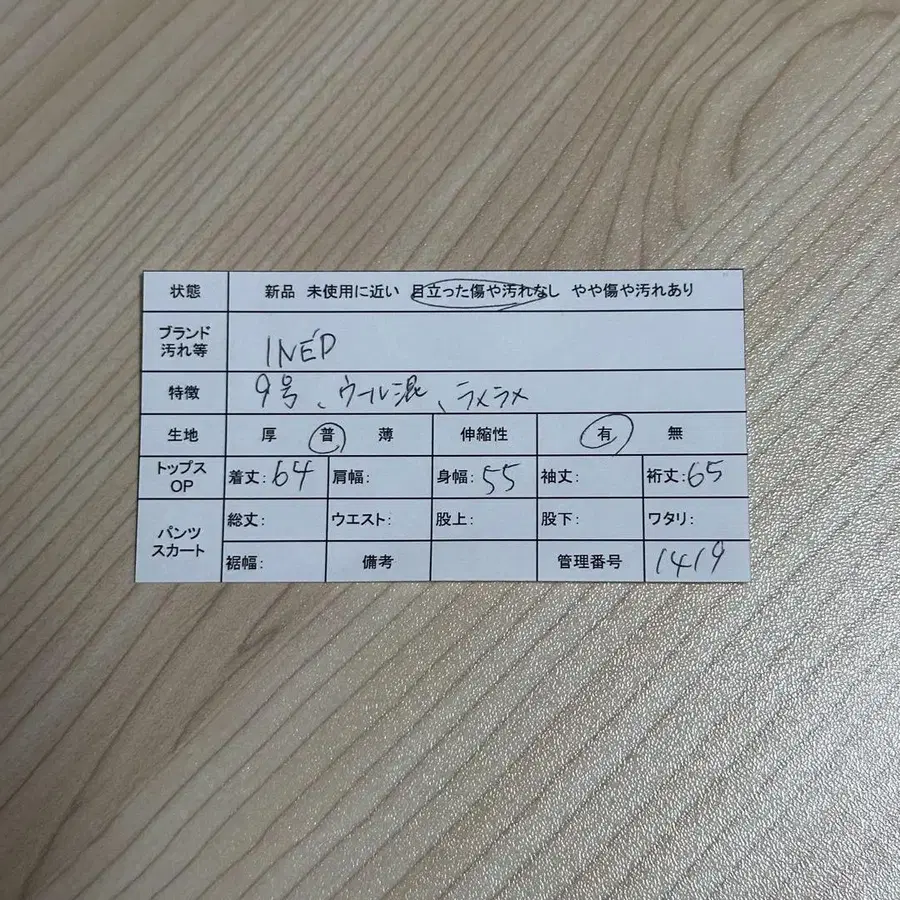 状態 新品 未使用に近い 目立った傷や汚れなし やや傷や汚れあり
ブランド
汚れ等
INÉD
特徴 9号、ウール混、ラメラメ
生地 厚 普 薄 伸縮性 有 無
トップス
OP
着丈:64 肩幅: 身幅:55 袖丈: 裄丈:65
パンツ
スカート
総丈: ウエスト: 股上: 股下: ワタリ:
裾幅: 備考 管理番号 1419